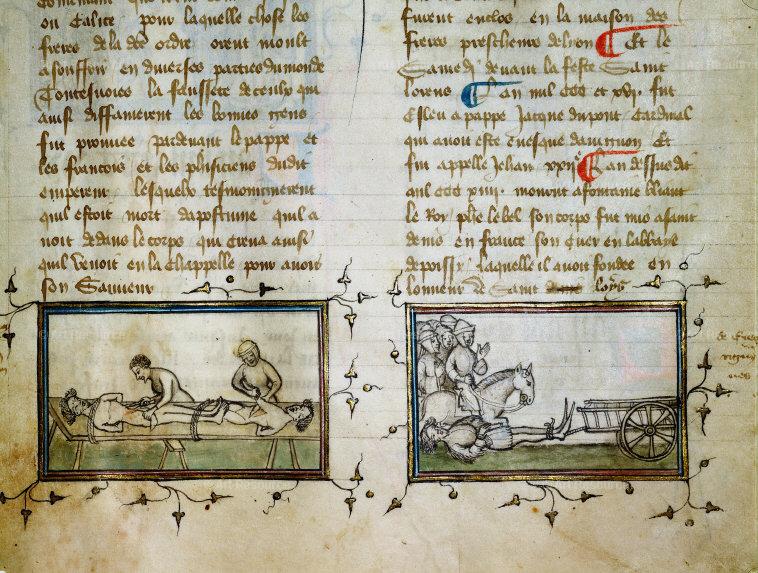 en Calice pour laquelle chose les
freres de la dce ordre orent moult
a souffrir en diverses parties du monde
Toutesvoies la faussete de ceulx qui
ainsi diffamerent les bonnes gens
fut prouvee pardevant le pappe et
les francois et les phisiciens dudit
empereur lesquelx tesmoingnerent
quil estoit mort dapostume quil a
voit dedans le corps qui creva ainsi
quil venoit en la chappelle pour avoir
son Sauveur
furent enclos en la maison des
freres prescheurs de lion Et le
Samedi devant la feste Saint
lorens Lan mil CCC et XVI fut
Esleu a pappe Jacque dupont Cardinal
qui avoit este evesque davignon Et
fut appelle Jehan XXII Lan dessusdit
mil CCC XIIII mourut a fontaine bliaut
le Roy phe le bel son corps fut mis a saint
denis en france son Cuer en labbaye
de poissy laquelle il avoit fondee en
lonneur de Saint loys